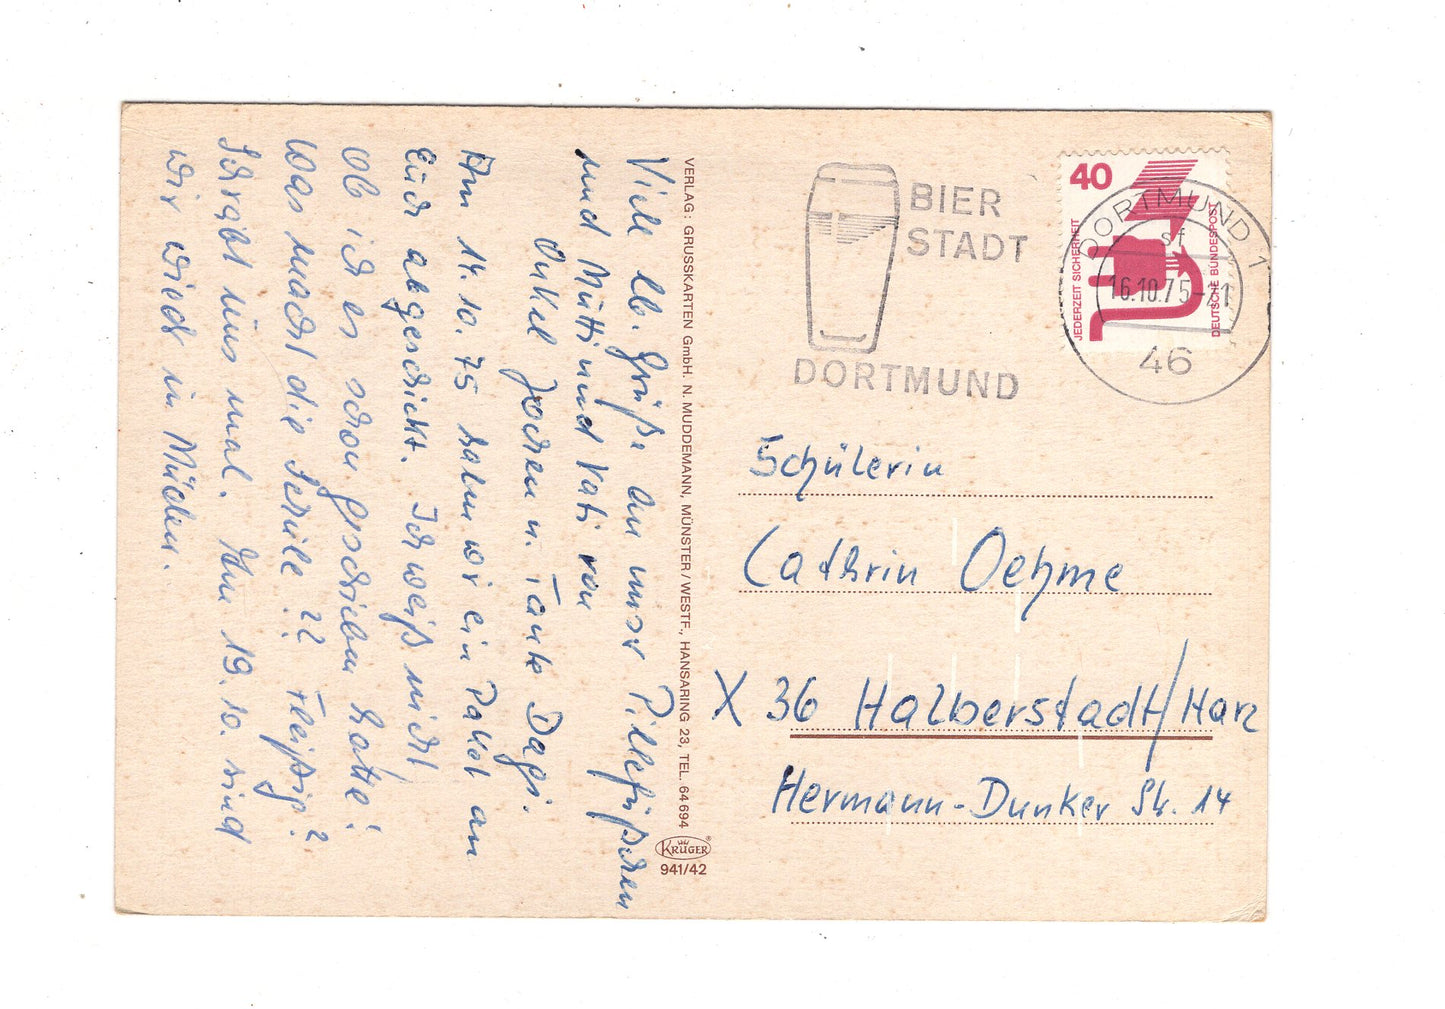 Viele lb. Grüße an unser Pillefüßchen
und Mutti und Kati von
Onkel Jochen u. Tante Dagi.
Am 14.10.75 haben wir ein Paket an
Euch abgeschickt. Ich weiß nicht
ob ich es schon geschrieben hatte!
Was macht die Schule?? Fleißig?
Schreibt uns mal. Am 19.10. sind
wir wieder in München.
VERLAG: GRUSSKARTEN GmbH. N. MUDDEMANN, MÜNSTER/WESTF., HANSARING 23, TEL. 64694
KRÜGER®
941/42
BIER
STADT
DORTMUND
40
JEDERZEIT SICHERHEIT
DEUTSCHE BUNDESPOST
DORTMUND 1
sf
16.10.75-21
46
Schülerin
Cathrin Oehme
X 36 Halberstadt/Harz
Hermann-Dunker Str. 14